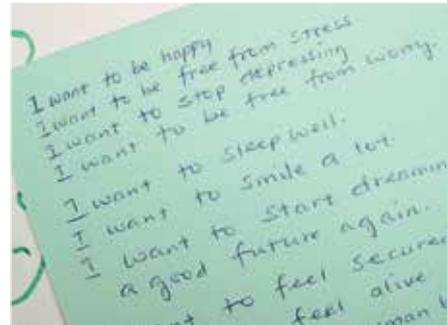 I want to be happy
I want to be free from stress
I want to stop depressing
I want to be free from worry.
I want to sleep well.
I want to smile a lot.
I want to start
a good future again.
to feel
feel alive